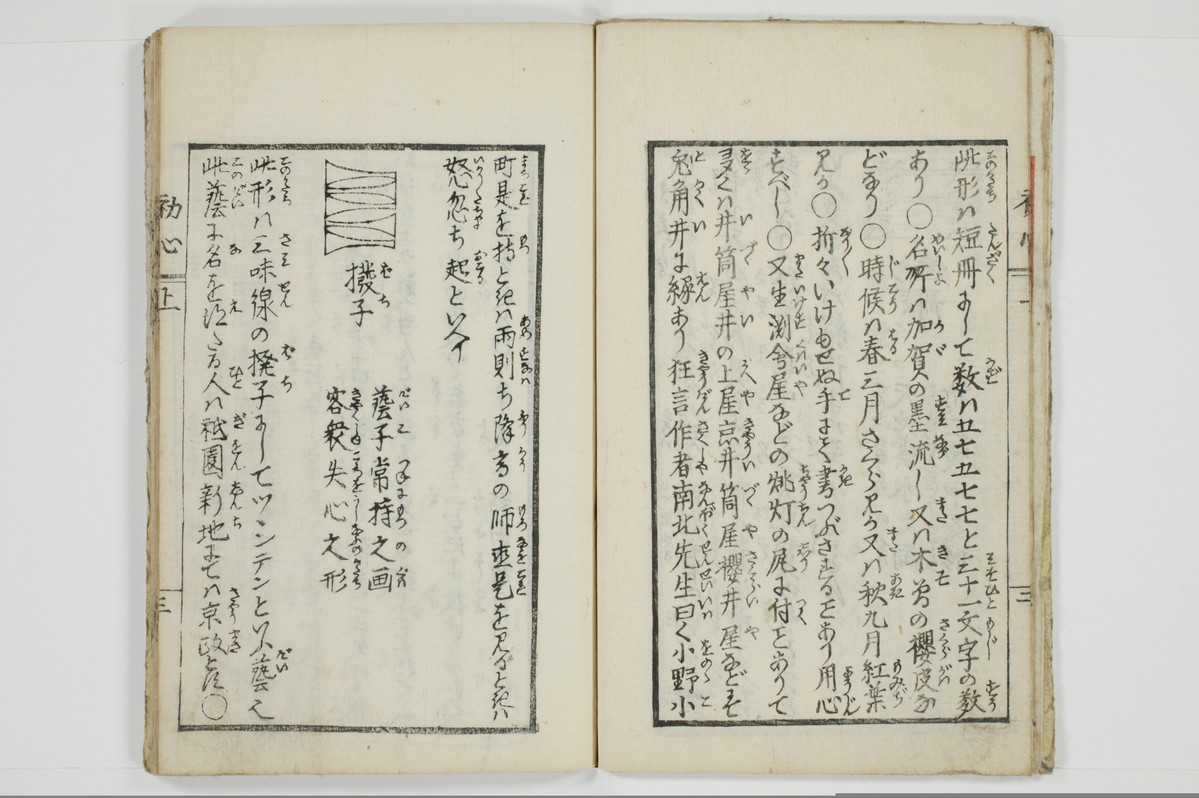 此形ハ短冊にして数ハ五七五七七と三十一文字の数
あり〇名所ハ加賀の墨流し又ハ木曽の櫻皮な
どなり〇時候ハ春三月さくら見か又ハ秋九月紅葉
見か〇折々いけもせぬ手にて書つぶさるゝことあり用心
すべし〇又生渕會屋などの挑灯の尾に付ことありて
多くハ井筒屋井の上屋京井筒屋櫻井屋などにて
兎角井に縁あり狂言作者南北先生曰く小野小
町是を持ときハ雨則ち降高の師直是を見るときハ
怒忽ち起といへり
撥子
藝子常持之画
客衆失心之形
此形ハ三味線の撥子にしてツンテンといふ藝也
此藝に名を得たる人ハ祇園新地にてハ京政とに〇
初心
上
三